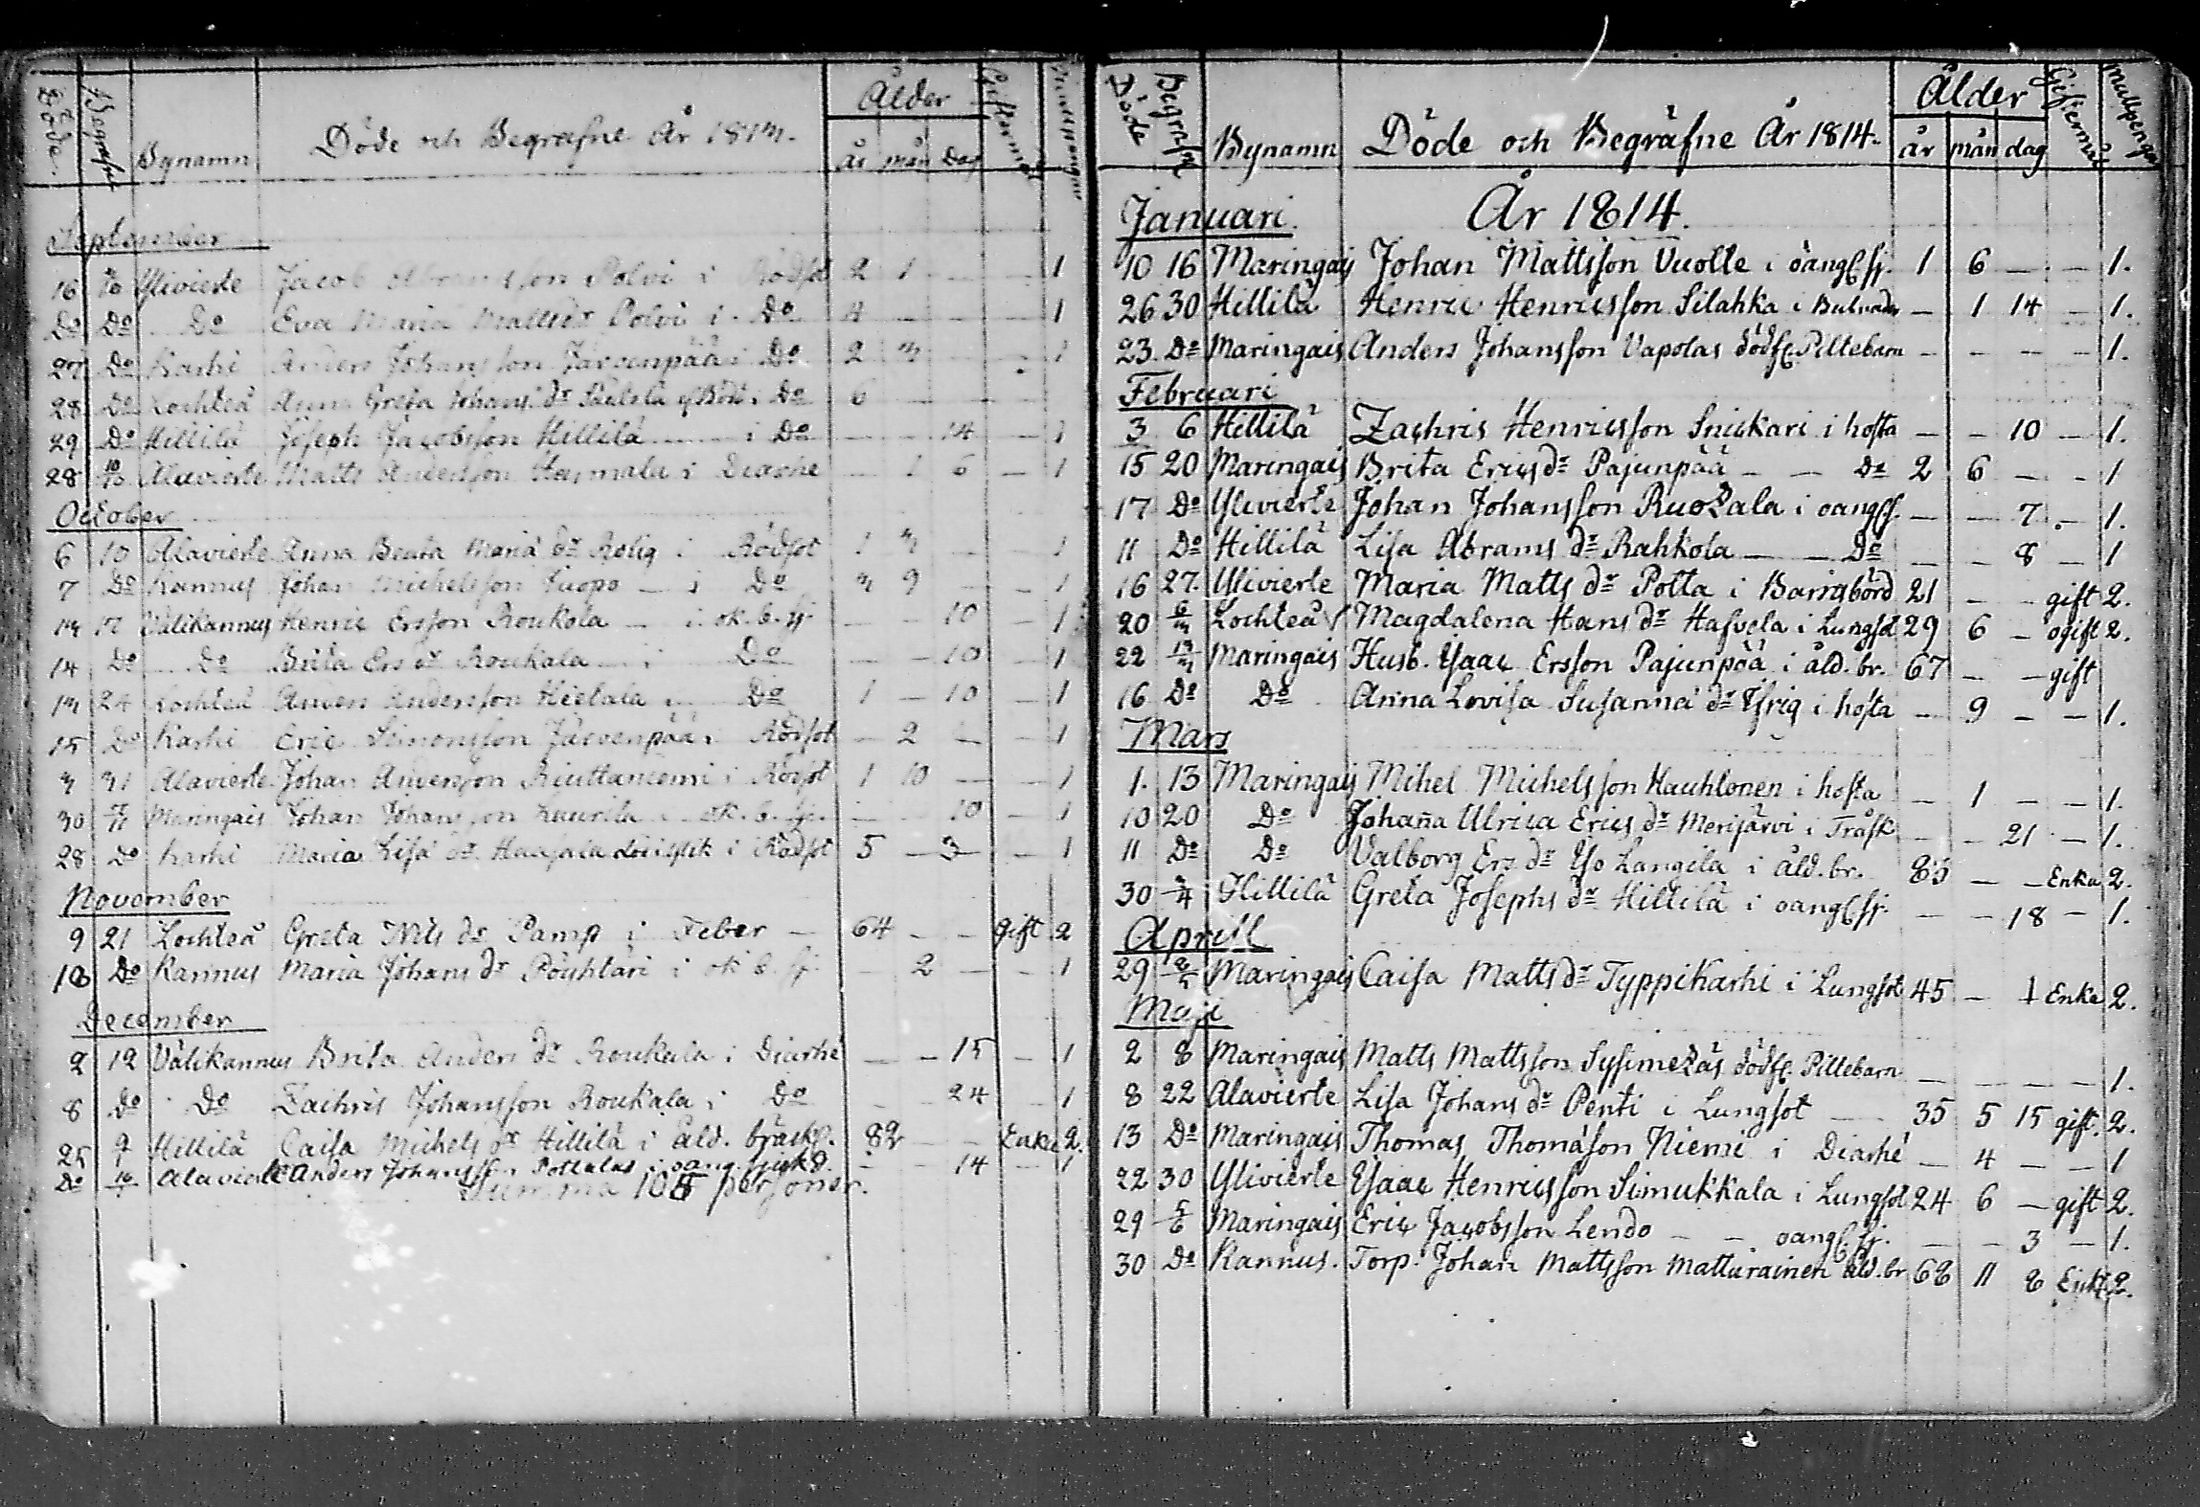 Döde Begrafne Bynamn Döde och Begrafne År 1813. Ålder år mån Dag Giftermål
September
16 Ylivierte Jacob Abramsson Polvi i Rödsot 2 1 — — 1
Do Do Do Eva Maria Matts dr Polvi i Do 4 — — — 1
27 Do Karhi Anders Johansson Järvenpää i Do 2 3 1
28 Do Lochteå Anna Greta Johans dr i Do 6 — — —
29 Do Hillilä Joseph Jacobsson Hillilä i Do — — 14 — 1
28 10/10 Alavierte Matts Andersson i Diarhe — 1 6 — 1
October
6 10 Alavierte Anna Beata Maria dr Rolig i Rödsot 1 3 1
7 Do Kannus Johan Michelsson Juopo — i Do 3 9 — 1
13 17 Välikannus Henric Ersson Roukala — i ok. b. sj. — — 10 — 1
14 Do Do Brita Ers dr Roukala i Do — — 10 — 1
13 24 Lochteå Anders Andersson Hietala i Do 1 — 10 — 1
15 Do Karhi Eric Simonsson Järvenpää i Rödsot — 2 — — 1
3 31 Alavierte Johan Andersson i Rödsot 1 10 — 1
30 Maringais Johan Johansson Kaurila i ok. b. sj. — — 10 — 1
28 Do Karhi Maria Lisa dr i Rödsot 5 — 3 — 1
November
9 21 Lochteå Greta Nils dr Pamp i Feber — 64 — — gift 2
10 Do Kannus Maria Johans dr Pöyhtäri i ok b. sj. 2 — — 1
December
2 12 Välikannus Brita Anders dr Roukala i Diarhé — — 15 — 1
8 Do Do Zachris Johansson Roukala i Do — — 24 — 1
25 Hillilä Caisa Michels dr Hillilä i åld. bräckl. 82 — — Enka 2.
Do Alavierte Anders Johansson — 14 — 1
Summa 105 personer.
Döde Begrafne Bynamn Döde och Begräfne År 1814. Ålder år mån dag Giftermål mullpengar
Januari. År 1814.
10 16 Maringais Johan Mattsson Vuolle i oangf. sj. 1 6 — — 1.
26 30 Hillilä Henric Henricsson Silahka i — 1 14 — 1.
23. Do Maringais Anders Johansson Vapolas dödf. Piltebarn — — — — 1.
Februari
3 6 Hillilä Zachris Henricsson Snickari i hosta — — 10 — 1.
15 20 Maringais Brita Erics dr Pajunpää — — Do 2 6 — — 1
17 Do Ylivierte Johan Johansson Ruokala i oangf. — — 7. — 1.
11 Do Hillilä Lisa Abrams dr Rahkola — — Do — — 8 — 1
16 27. Ylivierte Maria Matts dr Potta i Barnsbörd 21 — — gift 2.
20 6/3 Lochteå Magdalena Hans dr Hafvela i Lungsot 29 6 — ogift 2.
22 13/3 Maringais Husb. Isaac Ersson Pajunpää i åld. br. 67 — — gift
16 Do Do Anna Lovisa Susanna dr Isrig i hosta — 9 — — 1.
Mars
1. 13 Maringais Mihel Michelsson Hauhtonen i hosta — 1 — — 1.
10 20 Do Johaña Ulrica Erics dr Merijärvi i Tråsk — — 21 — 1.
11 Do Do Valborg Ers dr Iso Langila i åld. br. 85 — — Enka 2.
30 3/4 Hillilä Greta Josephs dr Hillilä i oangf. sj. — — 18 — 1.
Aprill
29 8/5 Maringais Caisa Matts dr Typpikarhi i Lungsot 45 — 1 Enke 2.
Maji
2 8 Maringais Matts Mattsson Sysimekäs dödf. Piltebarn — — — — 1.
8 22 Alavierte Lisa Johans dr Penti i Lungsot — 35 5 15 gift. 2.
13 Do Maringais Thomas Thomasson Niemi i Diarhé — 4 — — 1
22 30 Ylivierte Isaac Henricsson Simukkala i Lungsot 24 6 — gift 2.
29 5/6 Maringais Eric Jacobsson Lendo — — oangf. sj. — — 3 — 1.
30 Do Kannus. Torp. Johan Mattsson Matturainen åld. br 68 11 8 Enkl. 2.